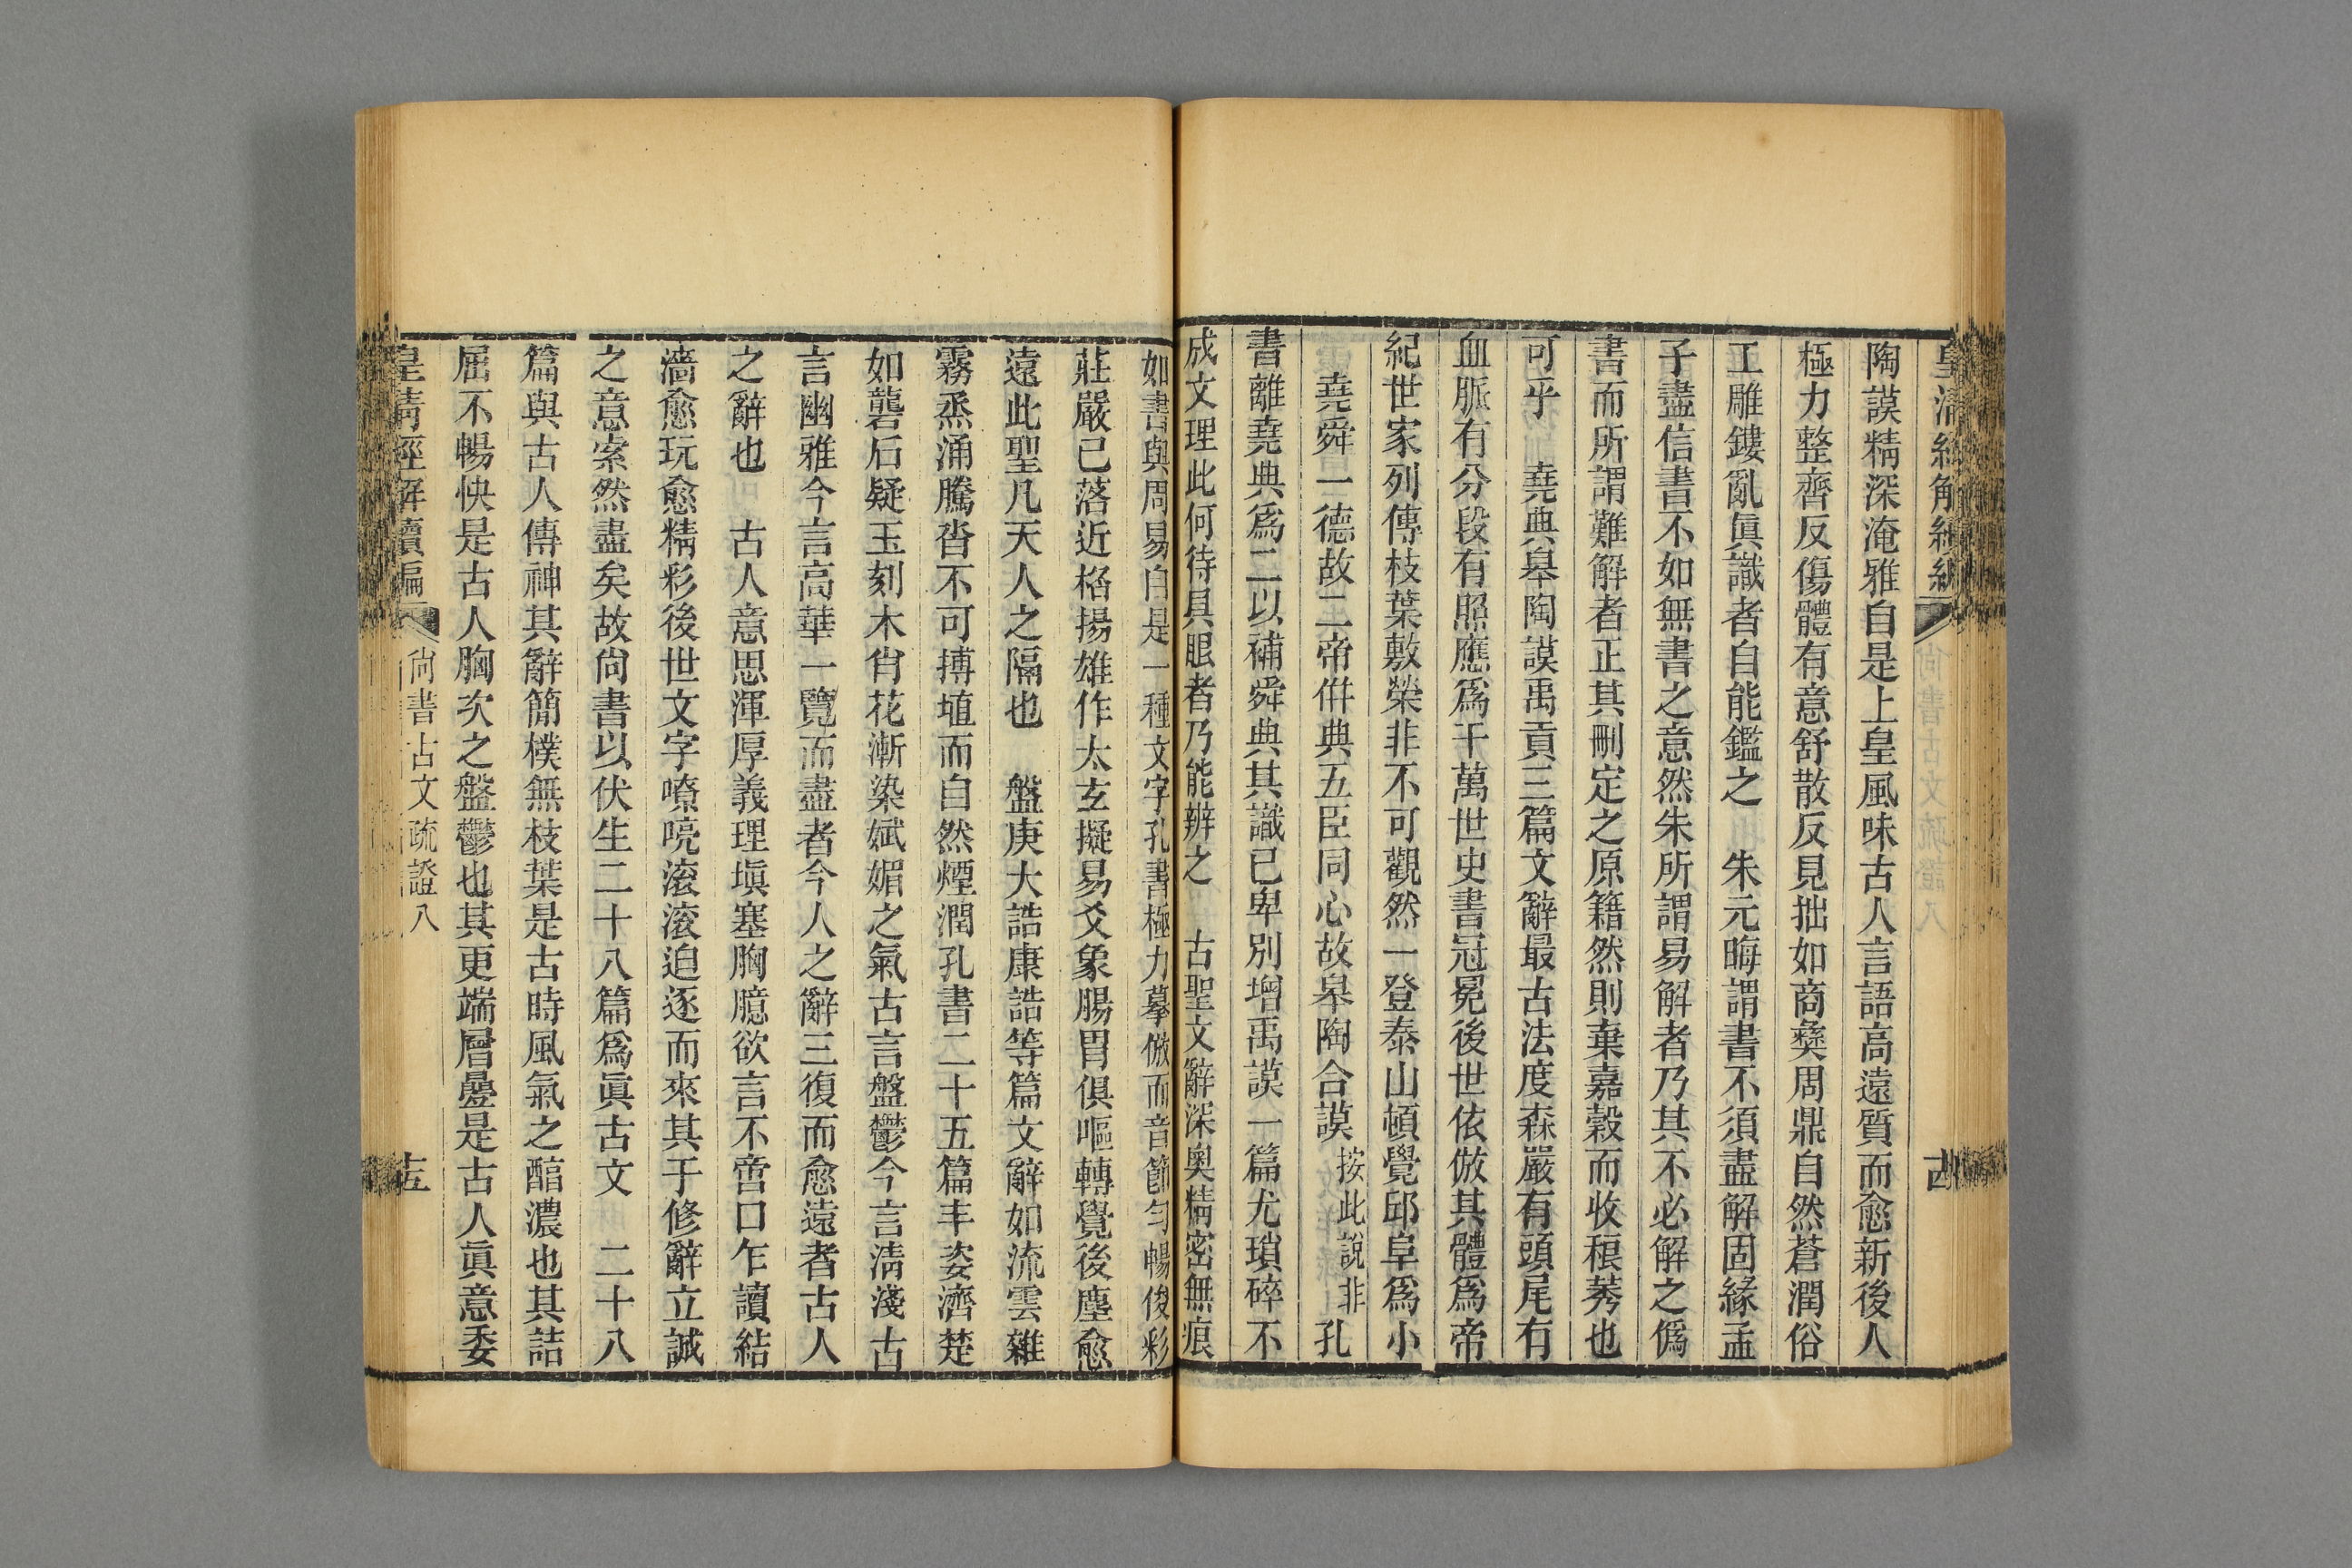 皇清經解續編
古
陶謨精深淹雅自是上皇風味古人言語高遠質而愈新後人
極力整齊反傷體有意舒散反見拙如商彝周鼎自然蒼潤俗
工雕鏤亂眞識者自能鑑之　朱元晦謂書不須盡解固緣孟
子盡信書不如無書之意然朱所謂易解者乃其不必解之僞
書而所謂難解者正其刪定之原籍然則棄嘉穀而收稂莠也
可乎　堯典臯陶謨禹貢三篇文辭最古法度森嚴有頭尾有
血脈有分段有照應爲千萬世史書冠冕後世依倣其體爲帝
紀世家列傳枝葉敷榮非不可觀然一登泰山頓覺邱阜爲小
堯舜一德故二帝倂典五臣同心故皋陶合謨按此說非孔
書離堯典爲二以補舜典其識已卑別增禹謨一篇尤瑣碎不
成文理此何待具眼者乃能辨之　古聖文辭深奧精密無痕
如書與周易自是一種文字孔書極力摹倣而音節勻暢俊彩
莊嚴已落近格揚雄作太玄擬易爻象腸胃俱嘔轉覺後塵愈
遠此聖凡天人之隔也　盤庚大誥康誥等篇文辭如流雲雜
霧烝涌騰沓不可摶埴而自然煙潤孔書二十五篇丰姿濟楚
如礱石疑玉刻木肖花漸染娬媚之氣古言盤鬱今言淸淺古
言幽雅今言高華一覽而盡者今人之辭三復而愈遠者古人
之辭也　古人意思渾厚義理塡塞胸臆欲言不啻口乍讀結
濇愈玩愈精彩後世文字嘹喨滾滾迫逐而來其于修辭立誠
之意索然盡矣故尙書以伏生二十八篇爲眞古文　二十八
篇與古人傳神其辭簡樸無枝葉是古時風氣之醇濃也其詰
屈不暢快是古人胸次之盤鬱也其更端層疊是古人眞意委
皇清經解續編
尙書古文疏證八
十五